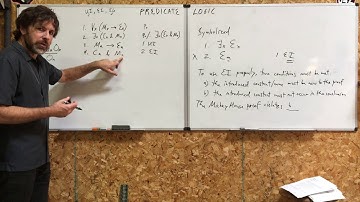 UI, EI,
PREDICATE LOGIC
1. ∀x (Mx → Ex)  P.
2. ∃x (Cx & Mx)
3. Ma → Ea  1 UI
4. Ca & Ma  2 EI
Symbolized
1. ∃x Ex
2. Ea  1 EI
To use EI properly, two conditions must be met
a) the introduced constant/name must be new to the proof
b) the introduced constant must not occur in the conclusion
The Mickey Mouse proof violates b